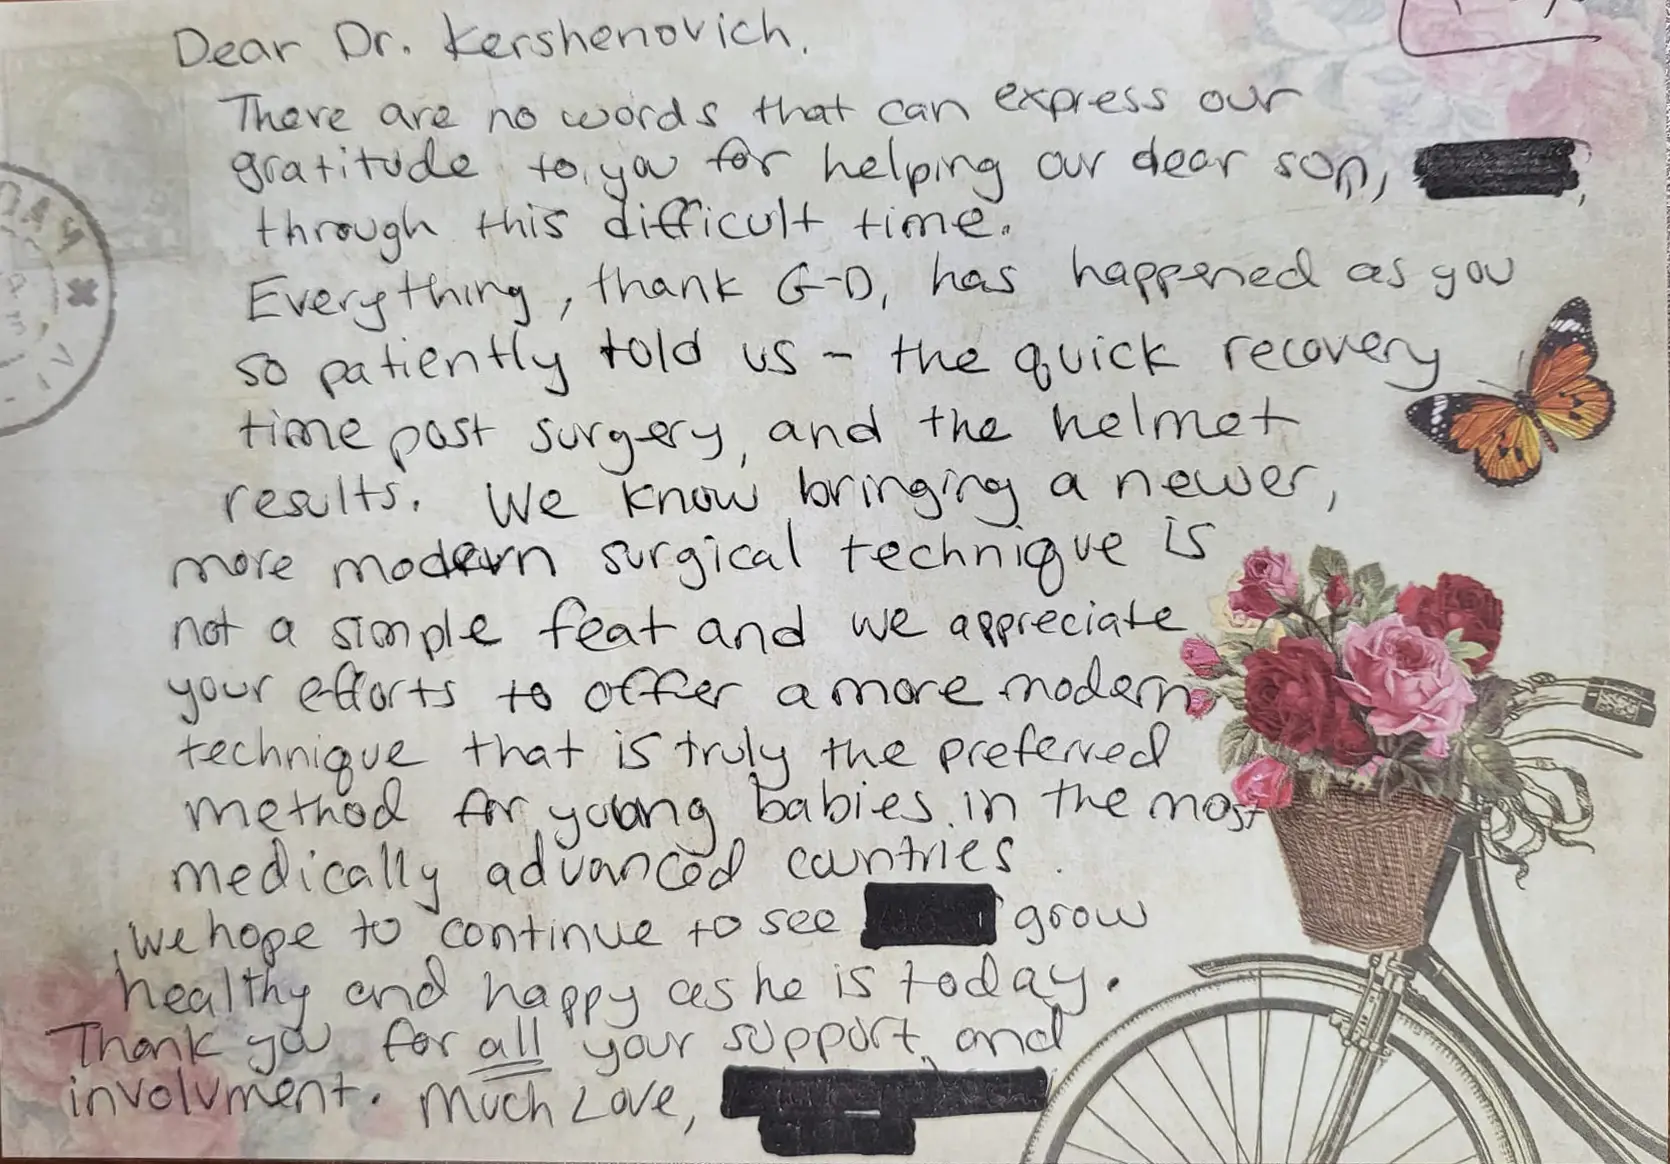 Dear Dr. Kershenovich,
There are no words that can express our
gratitude to you for helping our dear son, ,
through this difficult time.
Everything, thank G-D, has happened as you
so patiently told us - the quick recovery
time post surgery, and the helmet
results. We know bringing a newer,
more modern surgical technique is
not a simple feat and we appreciate
your efforts to offer a more modern
technique that is truly the preferred
method for young babies in the most
medically advanced countries.
We hope to continue to see grow
healthy and happy as he is today.
Thank you for all your support, and
involvment. Much Love,